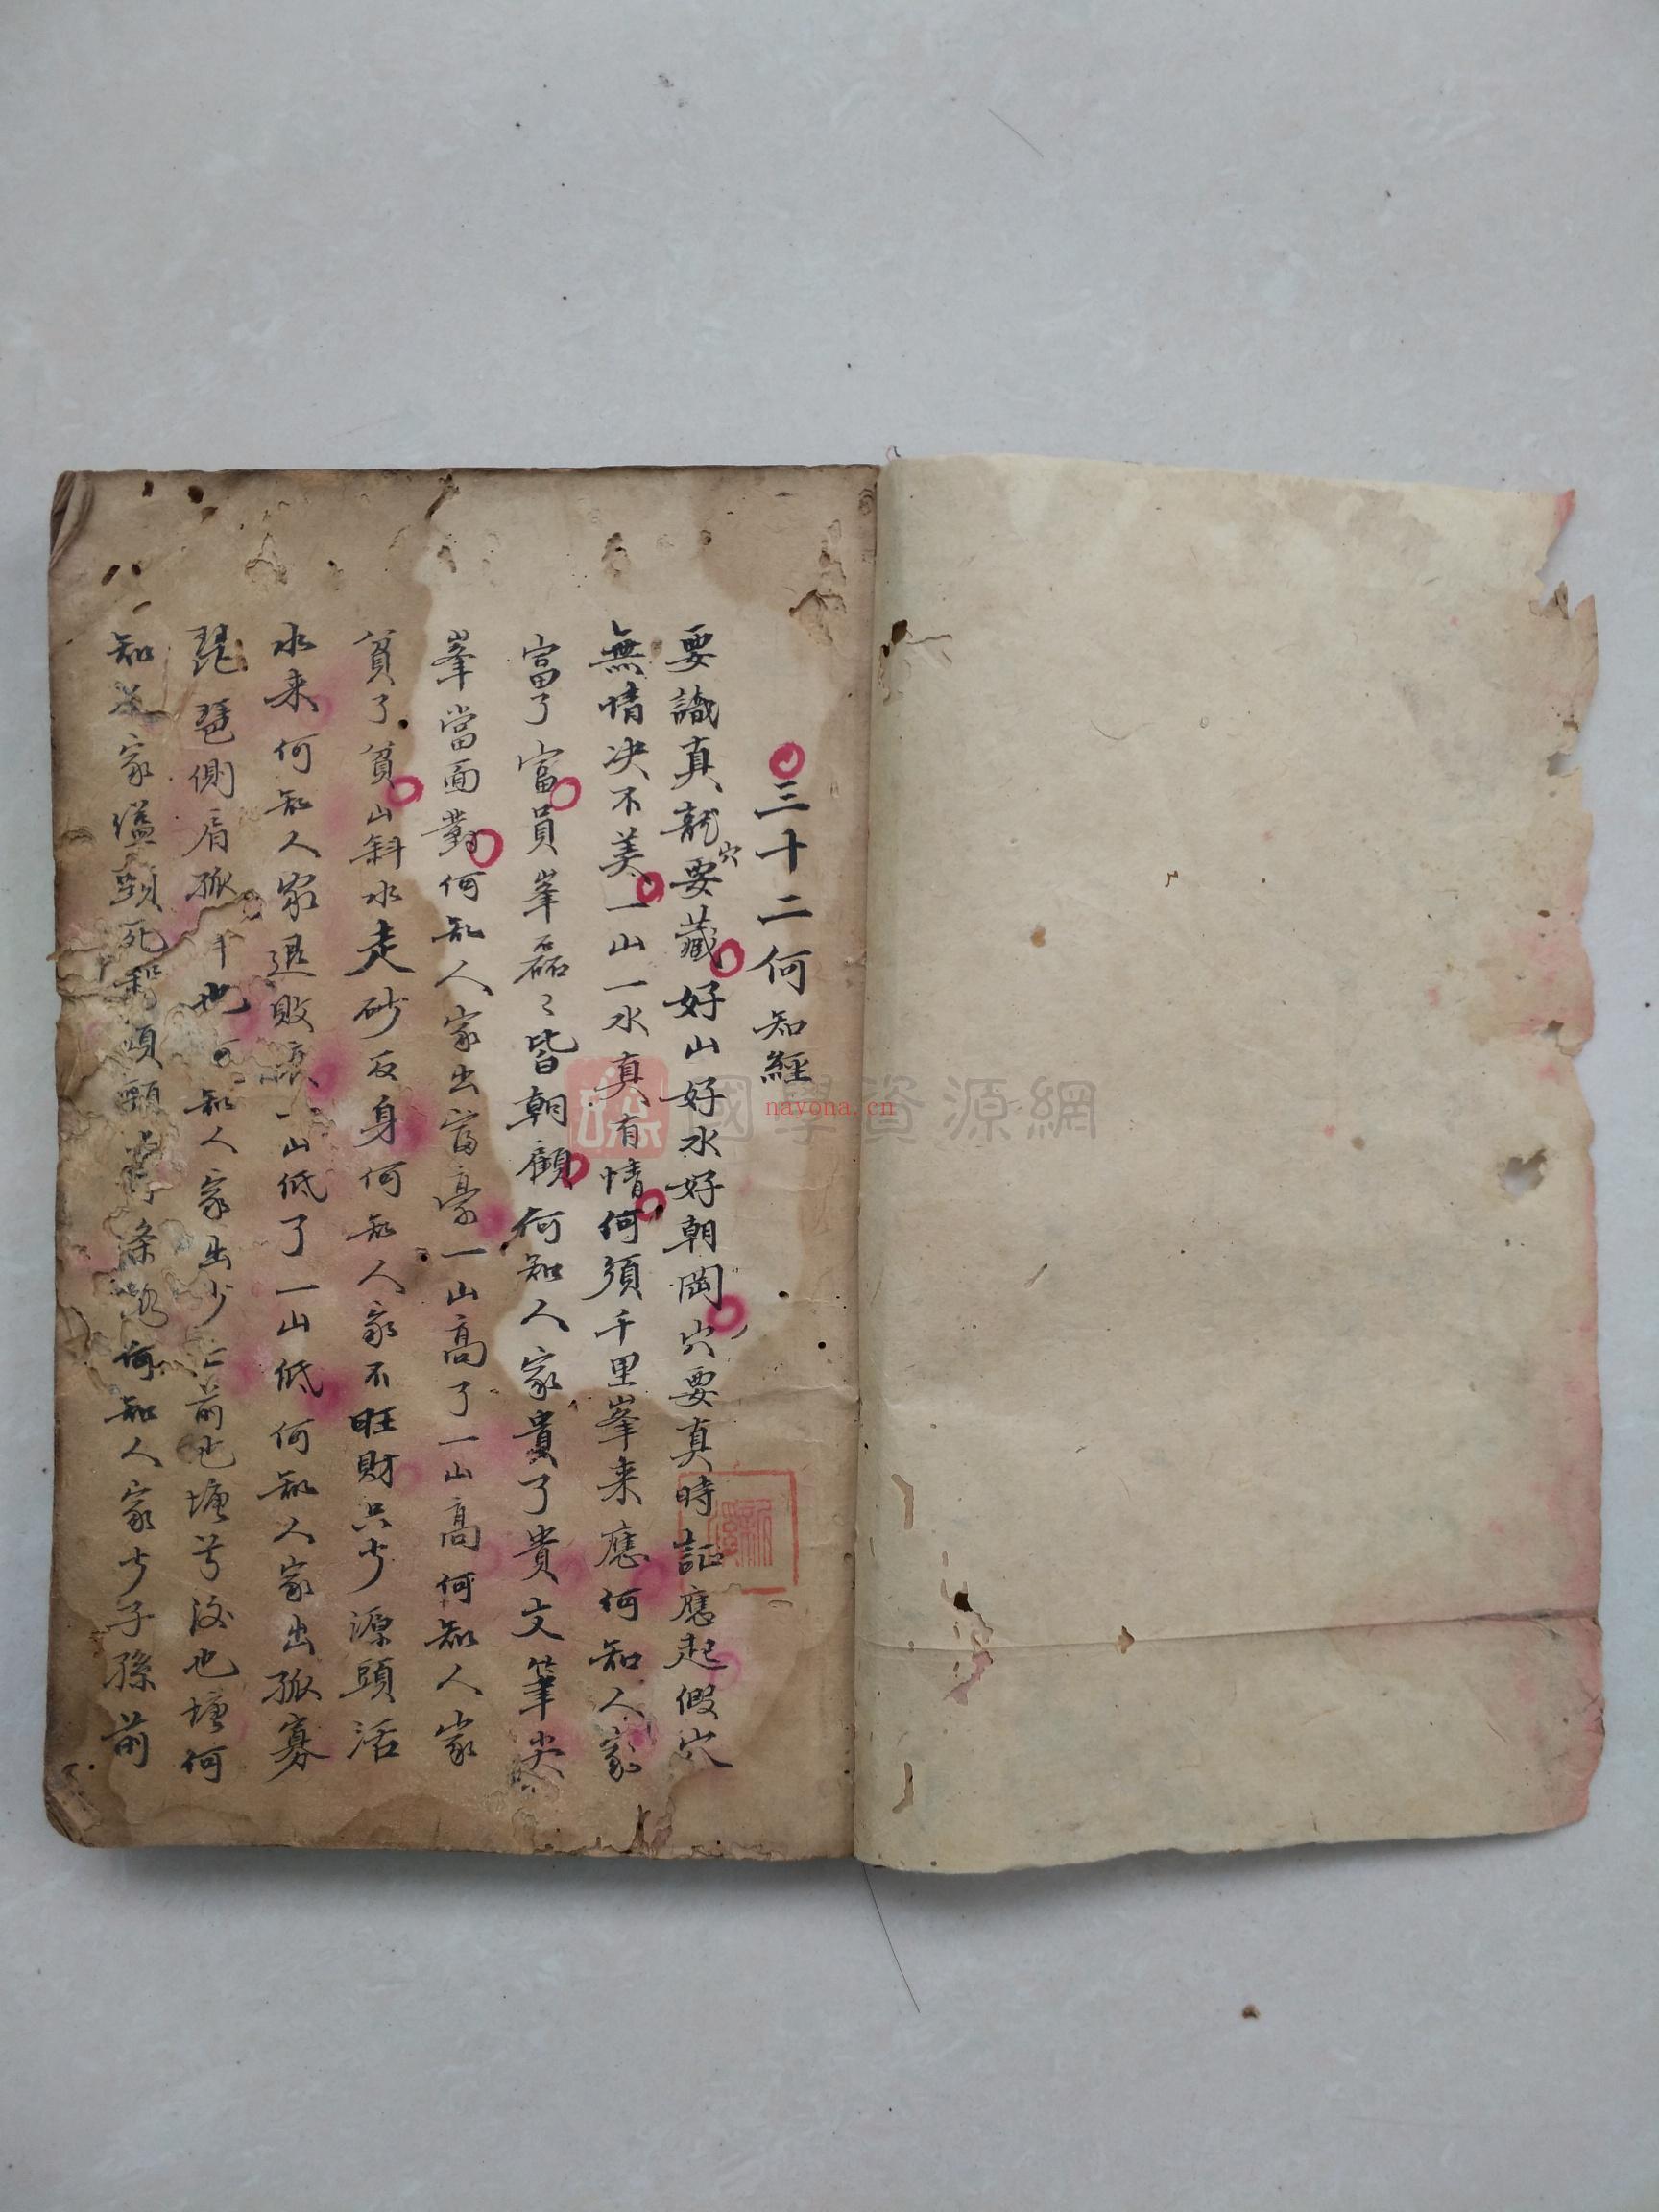 三十二何知經
要識真龍穴要藏好山好水好朝岡穴要真時証應起假穴
無情决不美一山一水真有情何須千里峯来應何知人家
富了富員峯磊〻皆朝顧何知人家貴了貴文筆尖
峯當面對何知人家出富豪一山高了一山高何知人家
貧了貧山斜水走砂反身何知人家不旺財只少源頭活
水来何知人家退敗一山低了一山低何知人家出孤寡
琵琶側肩孤也知人家出少亡前也塘兮後也塘何
知家縊頸死頸条路何知人家少子孫前
國學資源網
nayona.cn